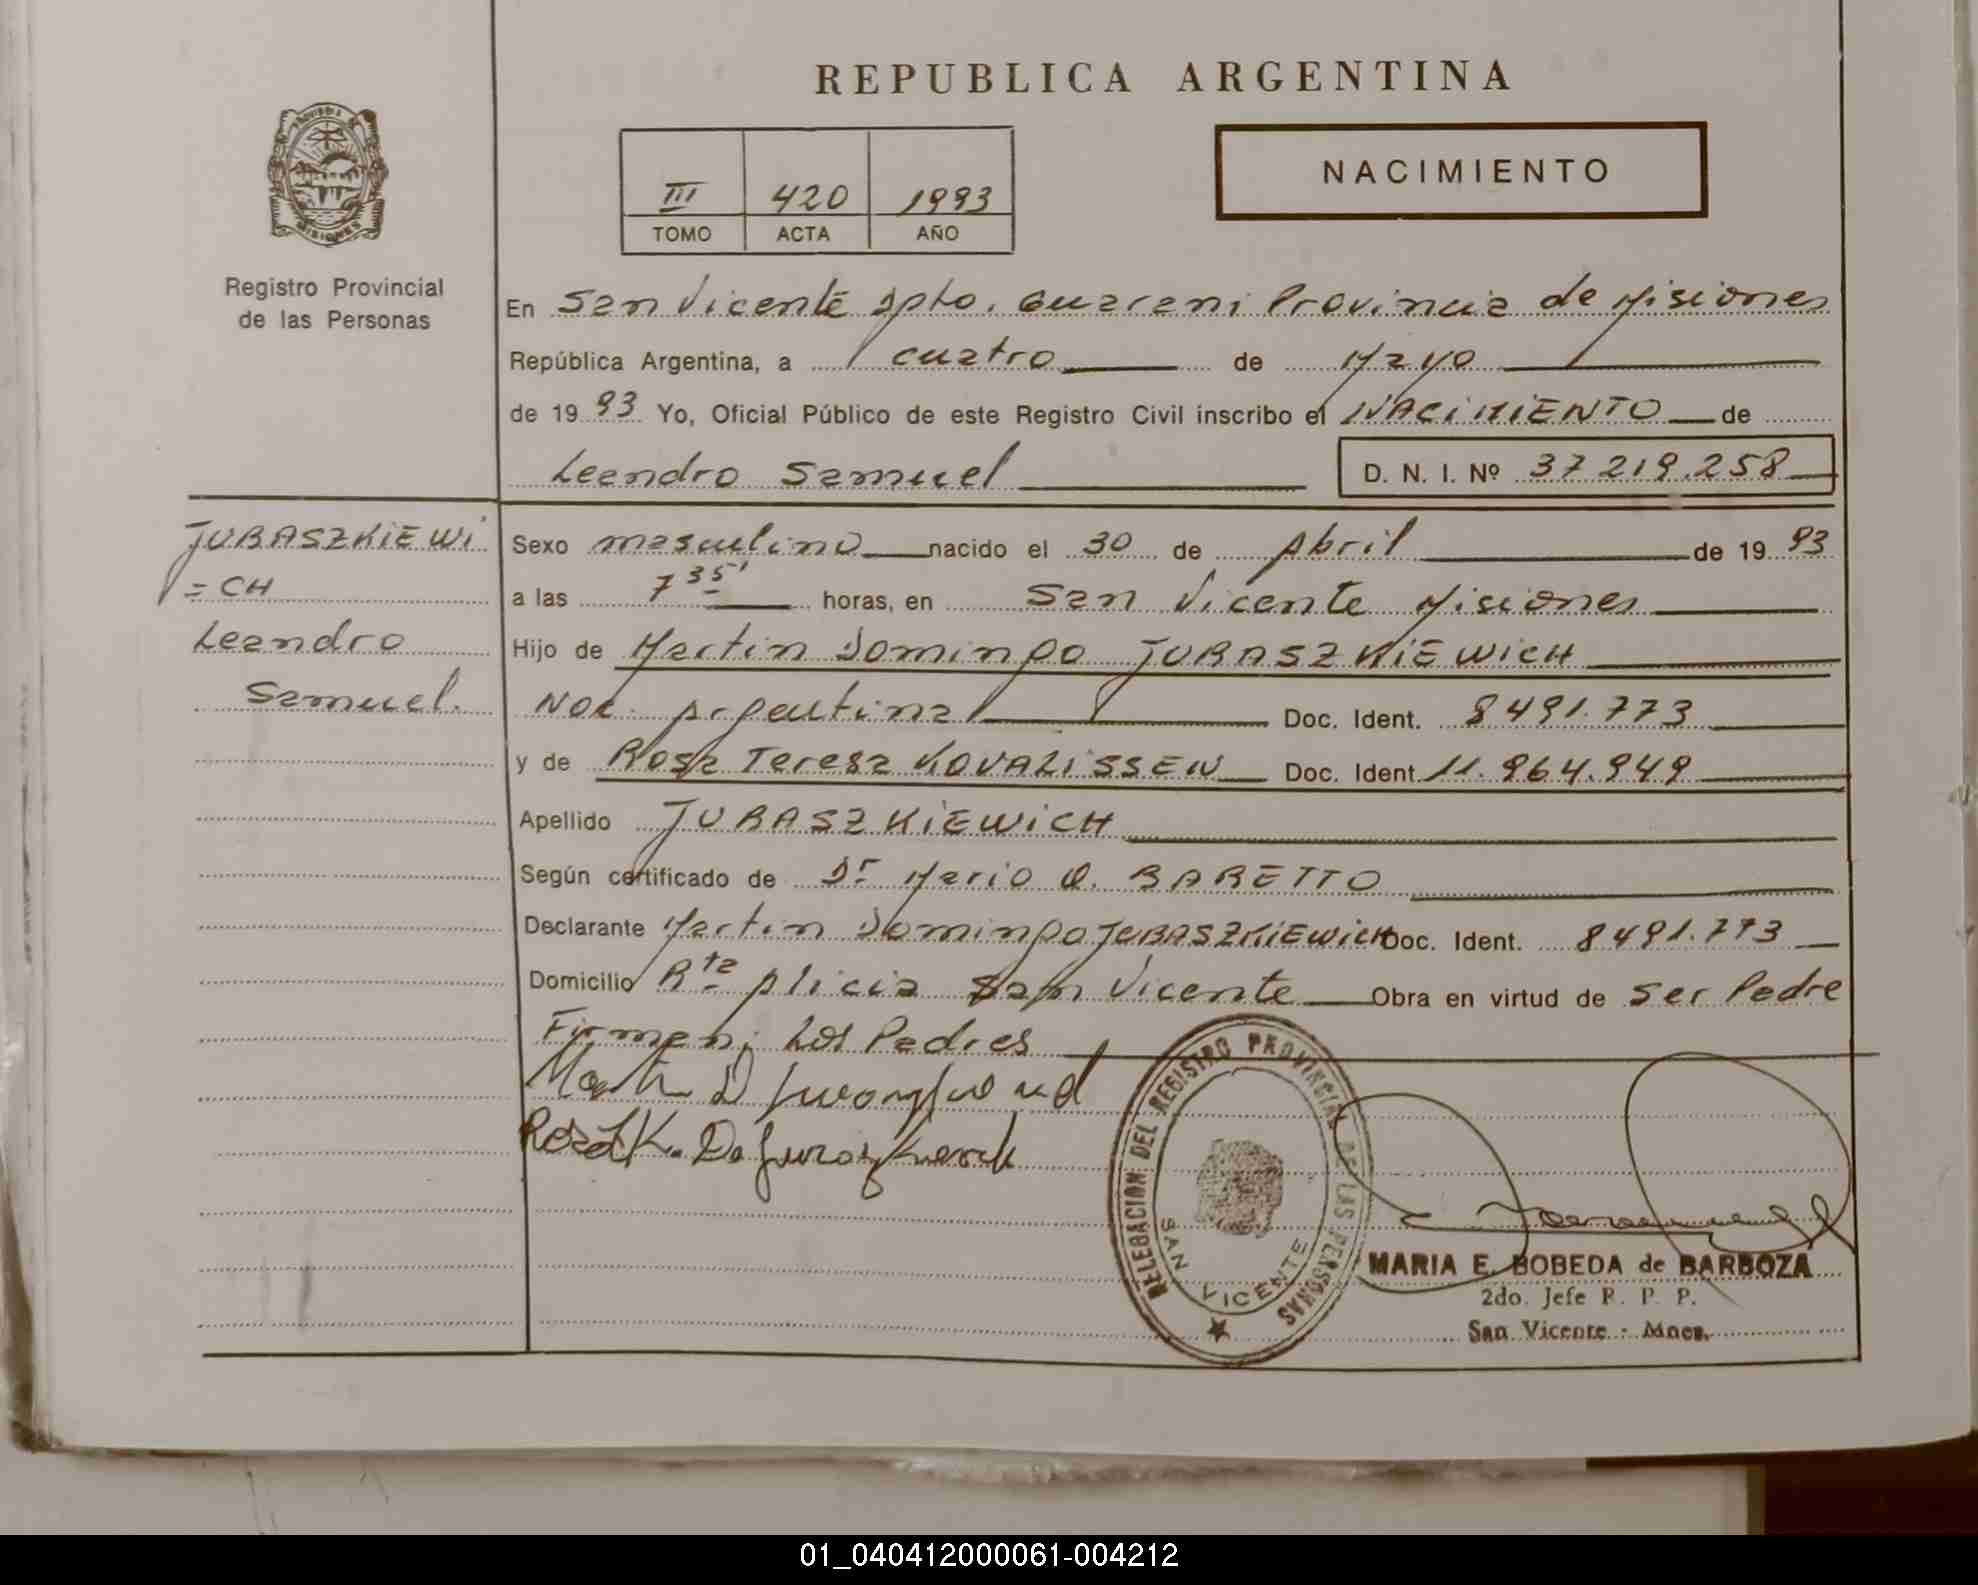 REPUBLICA ARGENTINA
NACIMIENTO
III 420 1993
TOMO ACTA AÑO
PROVINCIA DE MISIONES
Registro Provincial
de las Personas
En San Vicente Dpto. Guarani Provincia de Misiones
República Argentina, a cuatro de Mayo
de 1993 Yo, Oficial Público de este Registro Civil inscribo el NACIMIENTO de
Leandro Samuel D. N. I. Nº 37219.258
JURASZKIEWI
=CH
Leandro
Samuel.
Sexo masculino nacido el 30 de Abril de 1993
a las 7 35' horas, en San Vicente Misiones
Hijo de Martin Domingo JURASZKIEWICH
Nac. Argentina Doc. Ident. 8491.773
y de Rosa Teresa KOVALISSEN Doc. Ident. 11.964.949
Apellido JURASZKIEWICH
Según certificado de Dr Mario O. BARETTO
Declarante Martin Domingo JURASZKIEWICH Doc. Ident. 8491.773
Domicilio Rta Alicia San Vicente Obra en virtud de ser Padre
Firman: Los Padres
Rosa K. De
RELEBACION DEL REGISTRO PROVINCIAL DE LAS PERSONAS
SAN VICENTE
MARIA E. BOBEDA de BARBOZA
2do. Jefe R. P. P.
San Vicente - Mnes.
01_040412000061-004212